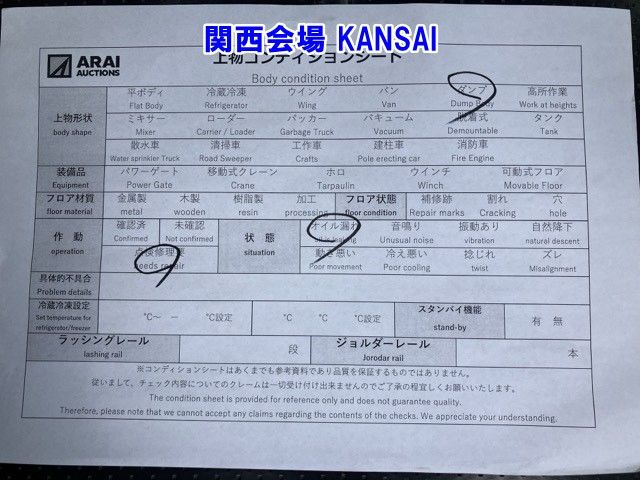 関西会場 KANSAI
上物コンディションシート
ARAI
AUCTIONS
Body condition sheet
上物形状
body shape
平ボディ 冷蔵冷凍 ウイング バン ダンプ 高所作業
Flat Body Refrigerator Wing Van Dump Body Work at heights
ミキサー ローダー パッカー バキューム 脱着式 タンク
Mixer Carrier / Loader Garbage Truck Vacuum Demountable Tank
散水車 清掃車 工作車 建柱車 消防車
Water sprinkler Truck Road Sweeper Crafts Pole erecting car Fire Engine
装備品 パワーゲート 移動式クレーン ホロ ウインチ 可動式フロア
Equipment Power Gate Crane Tarpaulin Winch Movable Floor
フロア材質 金属製 木製 樹脂製 加工 フロア状態 補修跡 割れ 穴
floor material metal wooden resin processing floor condition Repair marks Cracking hole
作動 確認済 未確認 状態 オイル漏れ 音鳴り 振動あり 自然降下
operation Confirmed Not confirmed situation Unusual noise vibration natural descent
点検修理要 動き悪い 冷え悪い 捻じれ ズレ
needs repair Poor movement Poor cooling twist Misalignment
具体的不具合
Problem details
冷蔵冷凍設定 ℃～ ー ℃設定 ℃ ℃ ℃設定 スタンバイ機能 有 無
Set temperature for
refrigerator/freezer stand-by
ラッシングレール 段 ジョルダーレール 本
lashing rail Jorodar rail
※コンディションシートはあくまでも参考資料であり品質を保証するものではありません。
従いまして、チェック内容についてのクレームは一切受け付け出来ませんのでご了承の程宜しくお願いいたします。
The condition sheet is provided for reference only and does not guarantee quality.
Therefore, please note that we cannot accept any claims regarding the contents of the checks. We appreciate your understanding.